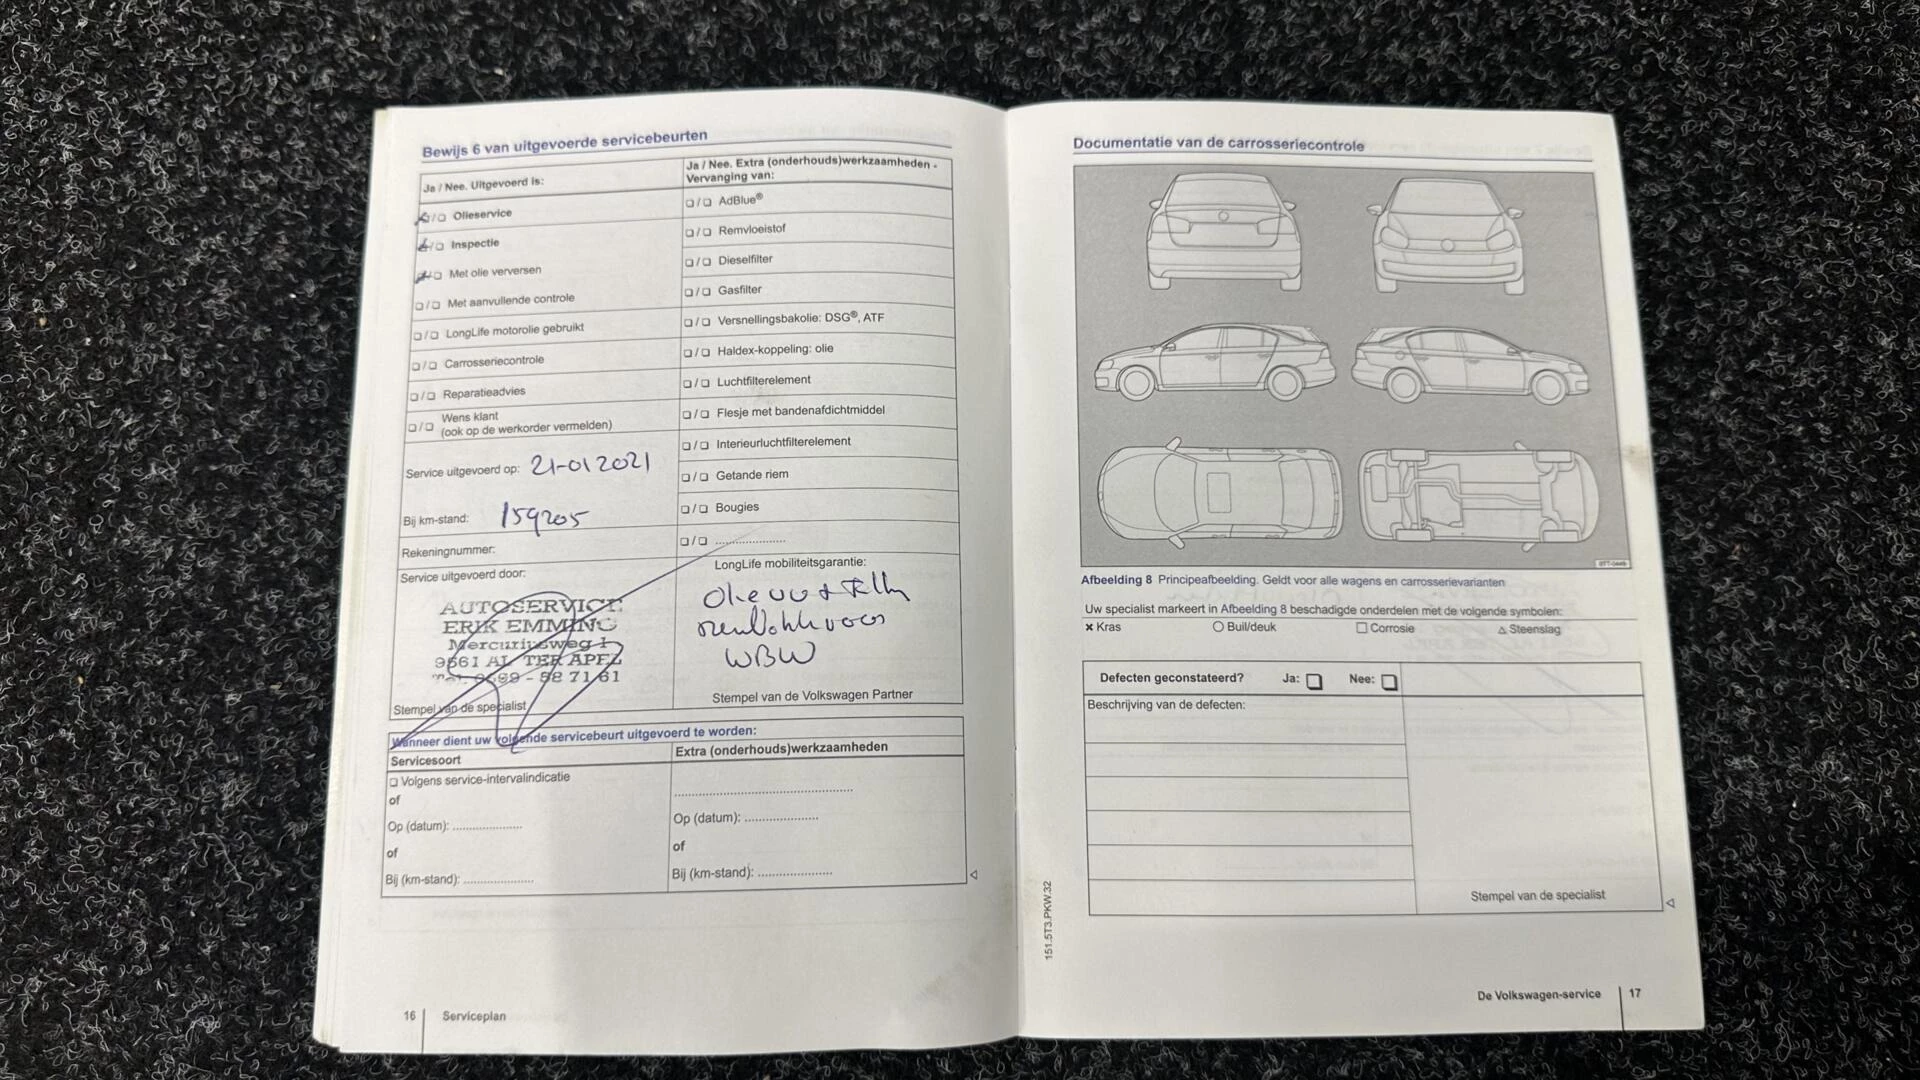 Bewijs 6 van uitgevoerde servicebeurten
Ja / Nee. Uitgevoerd is:
❏/❏ Olieservice
❏/❏ Inspectie
❏/❏ Met olie verversen
❏/❏ Met aanvullende controle
❏/❏ LongLife motorolie gebruikt
❏/❏ Carrosseriecontrole
❏/❏ Reparatieadvies
❏/❏ Wens klant
(ook op de werkorder vermelden)
Service uitgevoerd op: 21-01 2021
Bij km-stand: 159205
Rekeningnummer:
Service uitgevoerd door:
AUTOSERVICE
ERIK EMMING
Mercuriusweg 1
9561 AL TER APEL
Tel. 0599 - 58 71 61
Stempel van de specialist
Ja / Nee. Extra (onderhouds)werkzaamheden -
Vervanging van:
❏/❏ AdBlue®
❏/❏ Remvloeistof
❏/❏ Dieselfilter
❏/❏ Gasfilter
❏/❏ Versnellingsbakolie: DSG®, ATF
❏/❏ Haldex-koppeling: olie
❏/❏ Luchtfilterelement
❏/❏ Flesje met bandenafdichtmiddel
❏/❏ Interieurluchtfilterelement
❏/❏ Getande riem
❏/❏ Bougies
❏/❏ ....................
LongLife mobiliteitsgarantie:
WBW
Stempel van de Volkswagen Partner
Wanneer dient uw volgende servicebeurt uitgevoerd te worden:
Servicesoort
❏ Volgens service-intervalindicatie
of
Op (datum): ....................
of
Bij (km-stand): ....................
Extra (onderhouds)werkzaamheden
..................................................
Op (datum): ....................
of
Bij (km-stand): ....................
16 Serviceplan
Documentatie van de carrosseriecontrole
Afbeelding 8 Principeafbeelding. Geldt voor alle wagens en carrosserievarianten
Uw specialist markeert in Afbeelding 8 beschadigde onderdelen met de volgende symbolen:
× Kras ○ Buil/deuk □ Corrosie △ Steenslag
Defecten geconstateerd? Ja: ❏ Nee: ❏
Beschrijving van de defecten:
Stempel van de specialist
151.5T3.PKW.32
De Volkswagen-service 17